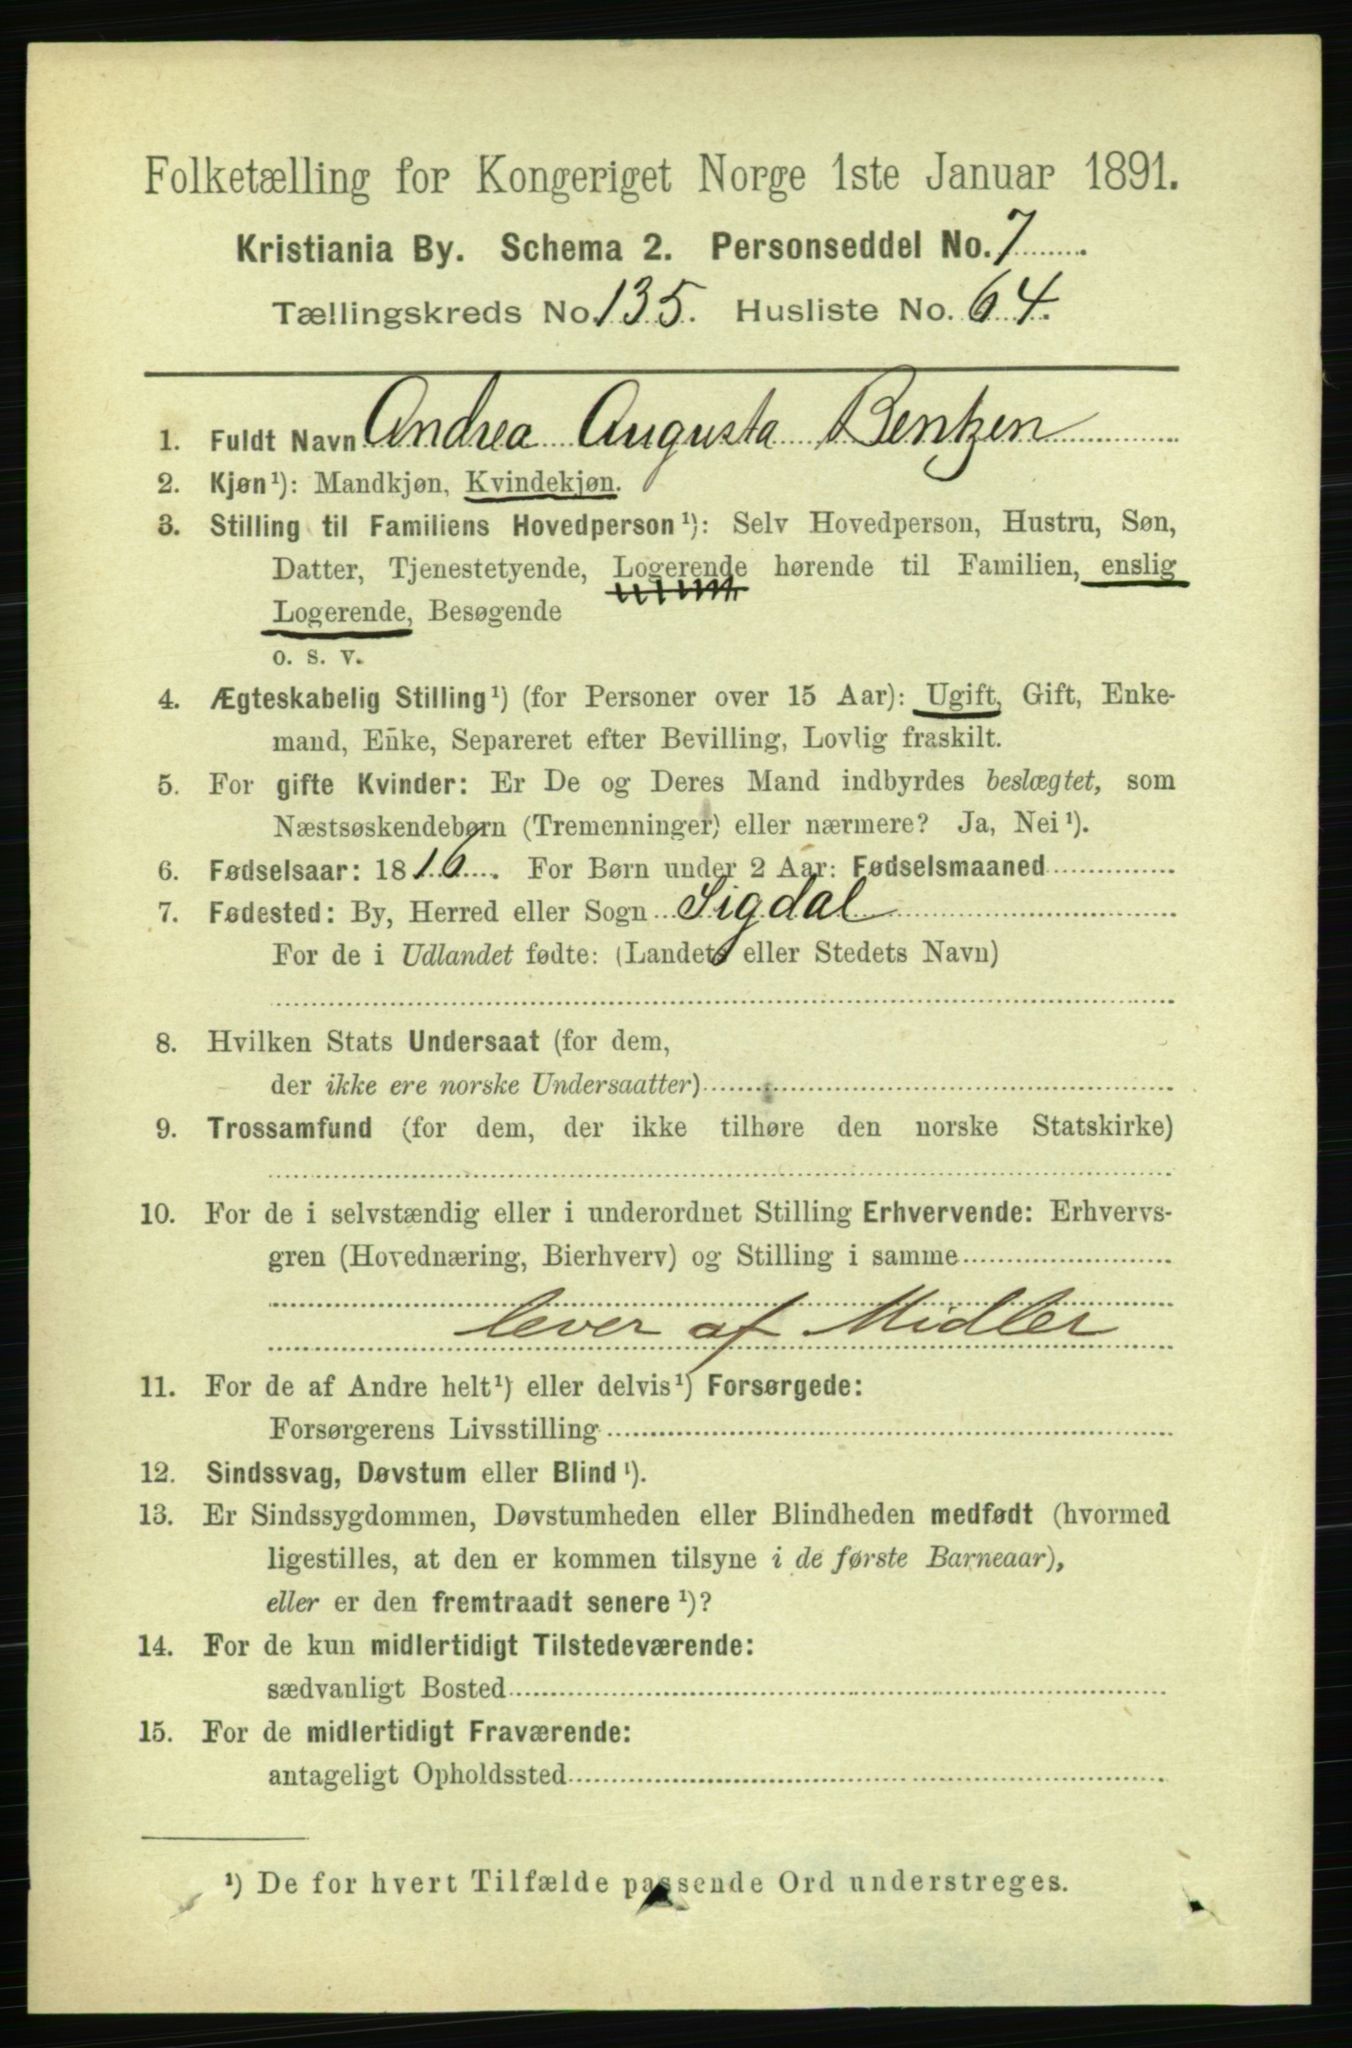 Folketælling for Kongeriget Norge 1ste Januar 1891.
Kristiania By. Schema 2. Personseddel No. 7
Tællingskreds No. 135. Husliste No. 64.
1. Fuldt Navn Andrea Augusta Bentzen
2. Kjøn¹): Mandkjøn, Kvindekjøn.
3. Stilling til Familiens Hovedperson¹): Selv Hovedperson, Hustru, Søn,
Datter, Tjenestetyende, Logerende hørende til Familien, enslig
Logerende, Besøgende
o. s. v.
4. Ægteskabelig Stilling¹) (for Personer over 15 Aar): Ugift, Gift, Enke-
mand, Enke, Separeret efter Bevilling, Lovlig fraskilt.
5. For gifte Kvinder: Er De og Deres Mand indbyrdes beslægtet, som
Næstsøskendebørn (Tremenninger) eller nærmere? Ja, Nei¹).
6. Fødselsaar: 1816. For Børn under 2 Aar: Fødselsmaaned
7. Fødested: By, Herred eller Sogn Sigdal
For de i Udlandet fødte: (Landets eller Stedets Navn)
8. Hvilken Stats Undersaat (for dem,
der ikke ere norske Undersaatter)
9. Trossamfund (for dem, der ikke tilhøre den norske Statskirke)
10. For de i selvstændig eller i underordnet Stilling Erhvervende: Erhvervs-
gren (Hovednæring, Bierhverv) og Stilling i samme
lever af Midler
11. For de af Andre helt¹) eller delvis¹) Forsørgede:
Forsørgerens Livsstilling
12. Sindssvag, Døvstum eller Blind¹).
13. Er Sindssygdommen, Døvstumheden eller Blindheden medfødt (hvormed
ligestilles, at den er kommen tilsyne i de første Barneaar),
eller er den fremtraadt senere¹)?
14. For de kun midlertidigt Tilstedeværende:
sædvanligt Bosted
15. For de midlertidigt Fraværende:
antageligt Opholdssted
¹) De for hvert Tilfælde passende Ord understreges.